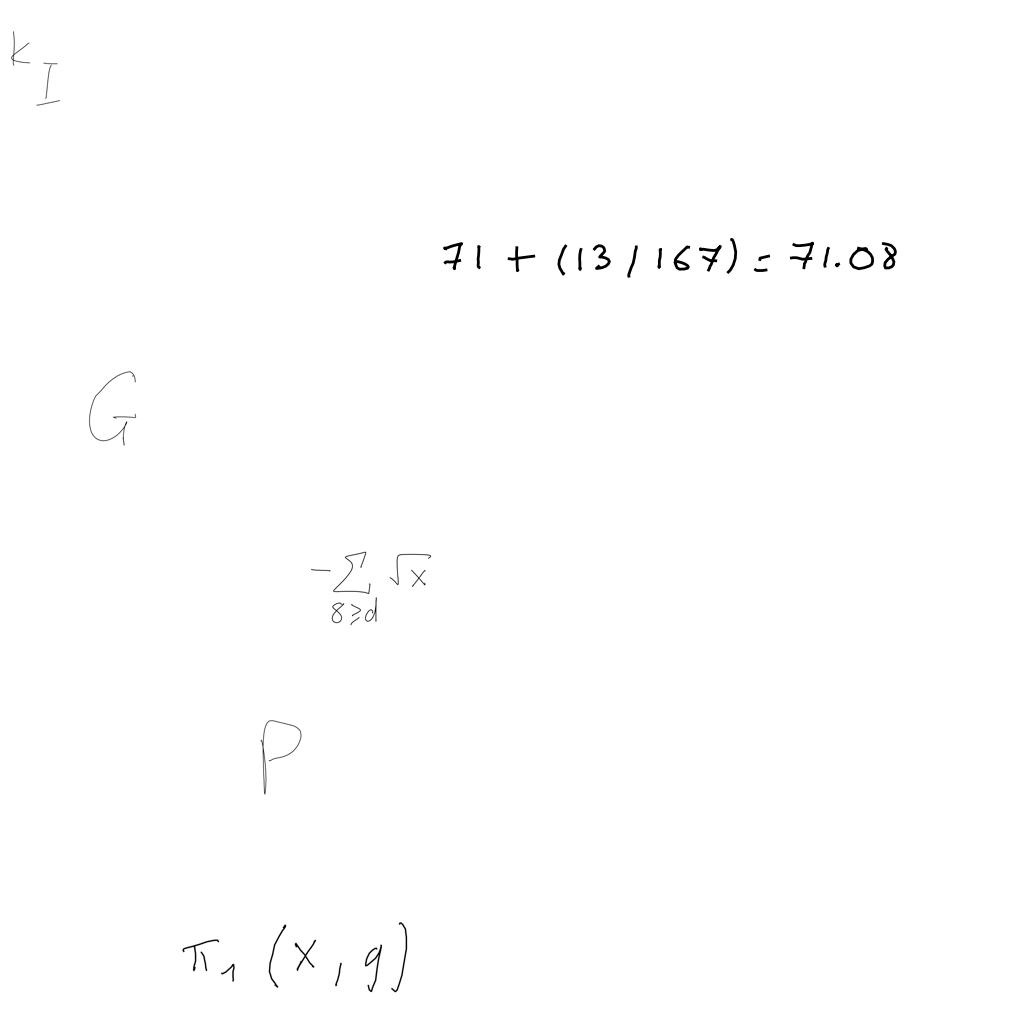 k
I
71 + (13 / 167) = 71.08
G
-∑_{8≥d} √x
P
π₁ (x, g)